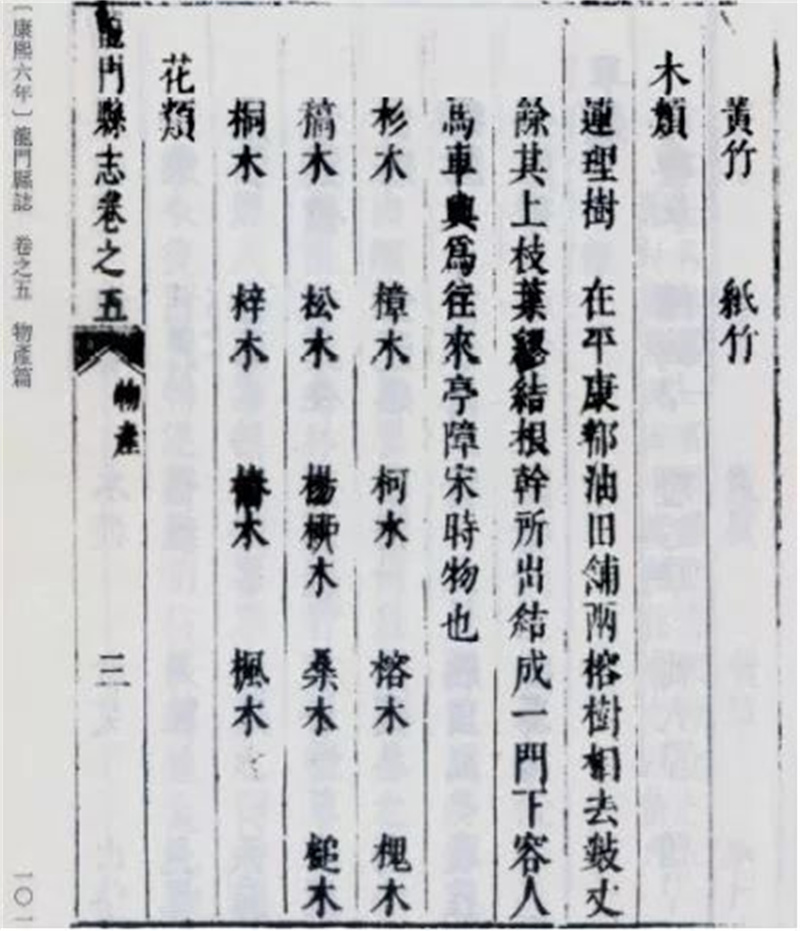 黃竹 紙竹
木類
蓮理樹 在平康都油田舖兩榕樹相去數丈
餘其上枝葉繆結根幹所出結成一門下容人
馬車輿爲往來亭障宋時物也
杉木 樟木 柯木 榕木 槐木
稿木 松木 楊柳木 桑木 槌木
桐木 梓木 木 楓木
花類
龍門縣志卷之五 物產 三
〔康熙六年〕龍門縣誌 卷之五 物產篇
一〇一